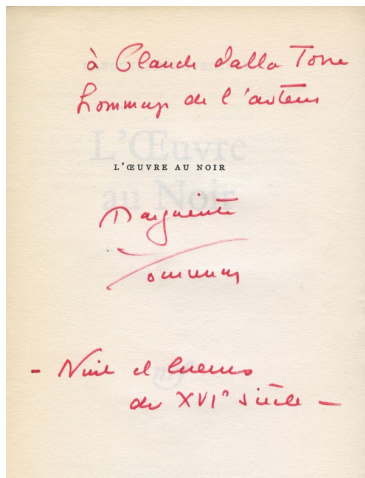 à Claude Dalla Torre
hommage de l'auteur
L'ŒUVRE AU NOIR
Marguerite
Yourcenar
- Nuit et lueurs
du XVIe siècle -